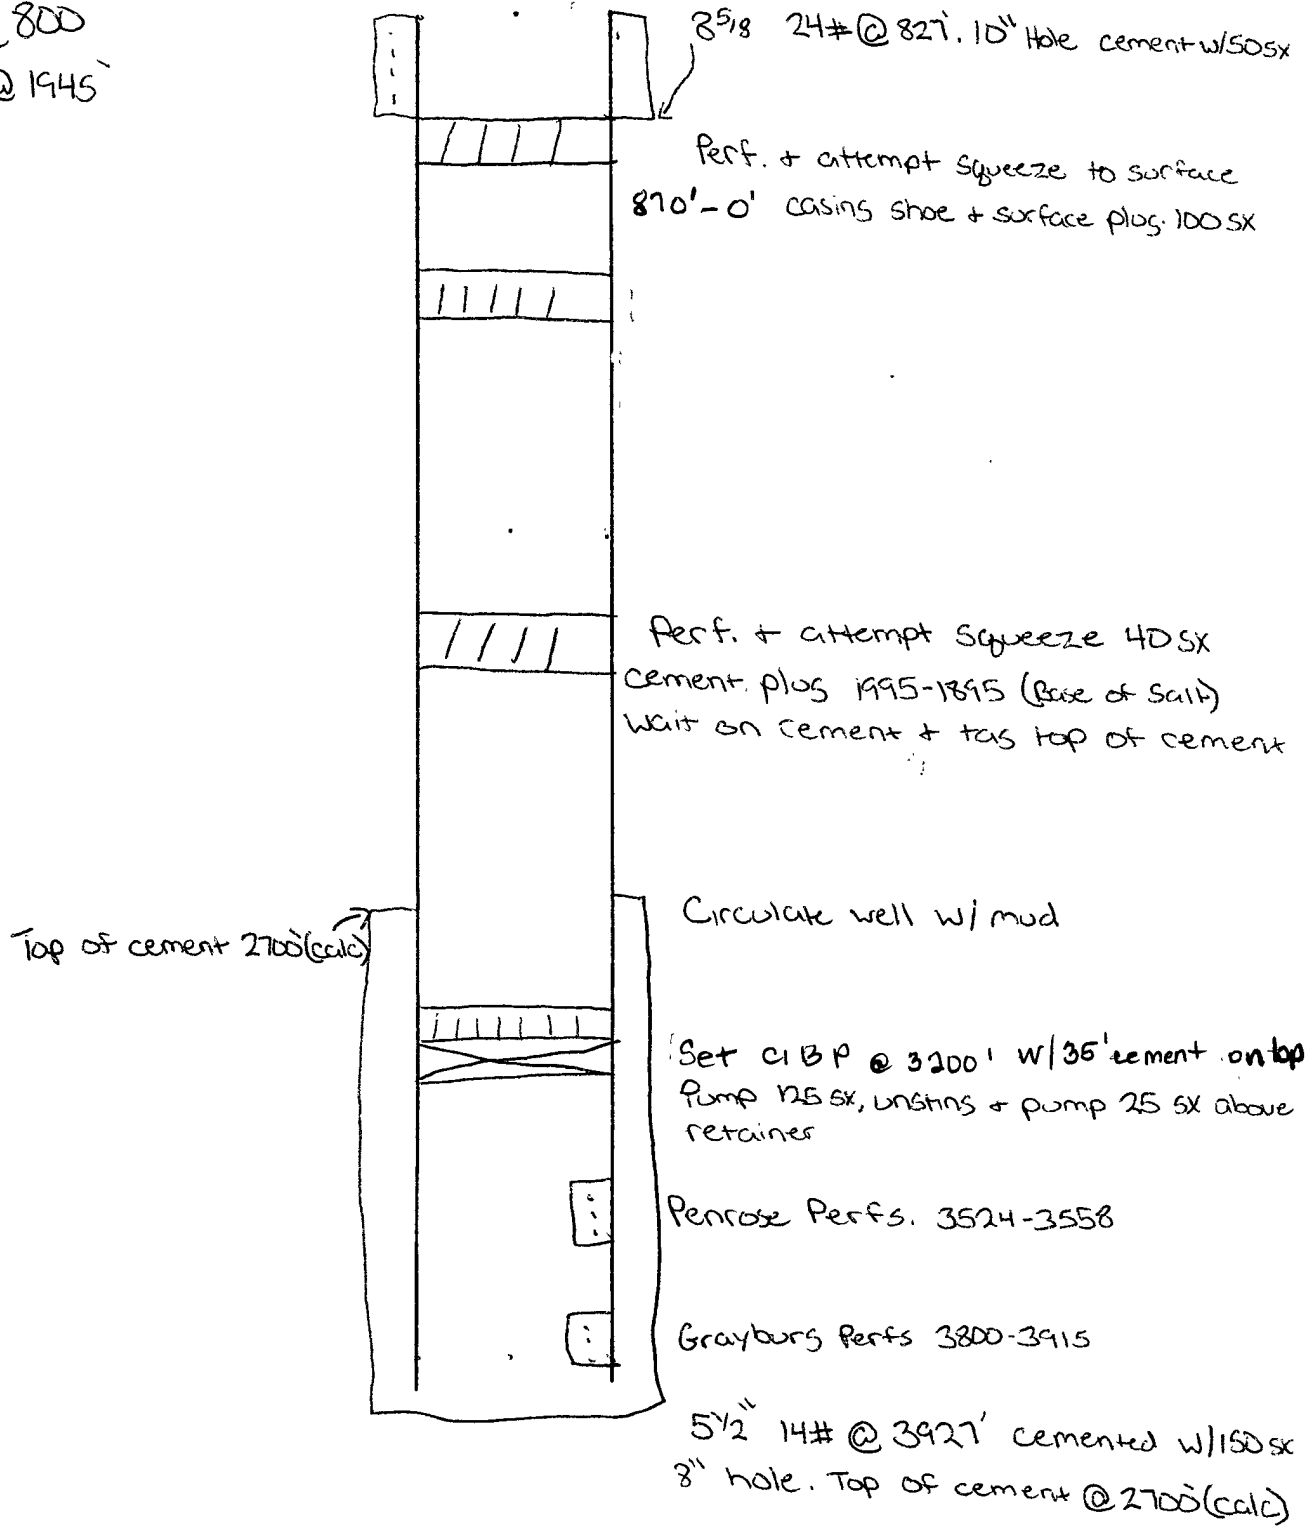 800
@ 1945'
8 5/8 24# @ 827'. 10" Hole cement w/50sx
Perf. + attempt squeeze to surface
870'-0' casing shoe + surface plug. 100 sx
Perf. + attempt squeeze 40 sx
cement plug 1995-1895 (Base of Salt)
wait on cement + tag top of cement
Circulate well w/ mud
Top of cement 2700'(calc)
Set CIBP @ 3200' W/35' cement on top
Pump 125 sx, unsting + pump 25 sx above
retainer
Penrose Perfs. 3524-3558
Grayburg Perfs 3800-3915
5 1/2" 14# @ 3927' cemented w/150 sx
8" hole. Top of cement @ 2700'(calc)